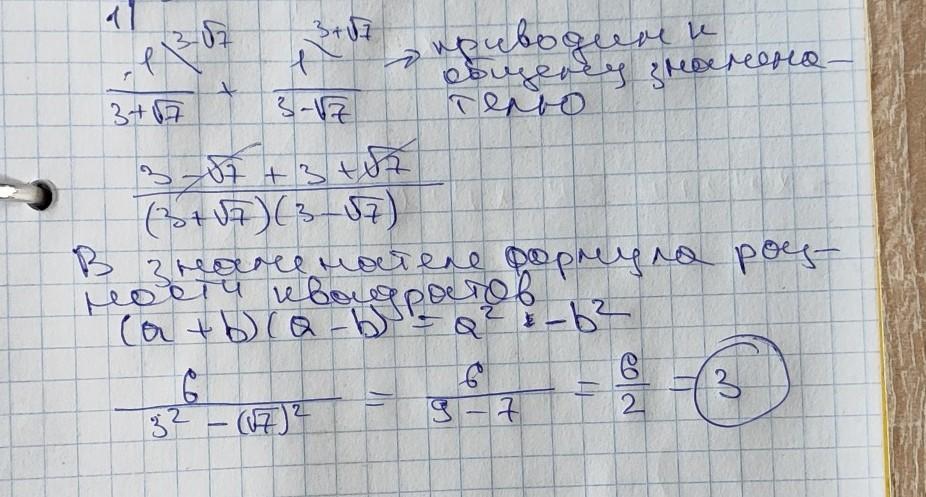 1)
1\3-√7 / 3+√7 + 1\3+√7 / 3-√7 → приводим к
общему знамена-
телю
3-√7+3+√7 / (3+√7)(3-√7)
В знаменателе формула раз-
ности квадратов
(a+b)(a-b) = a² - b²
6 / 3² - (√7)² = 6 / 9-7 = 6/2 = 3